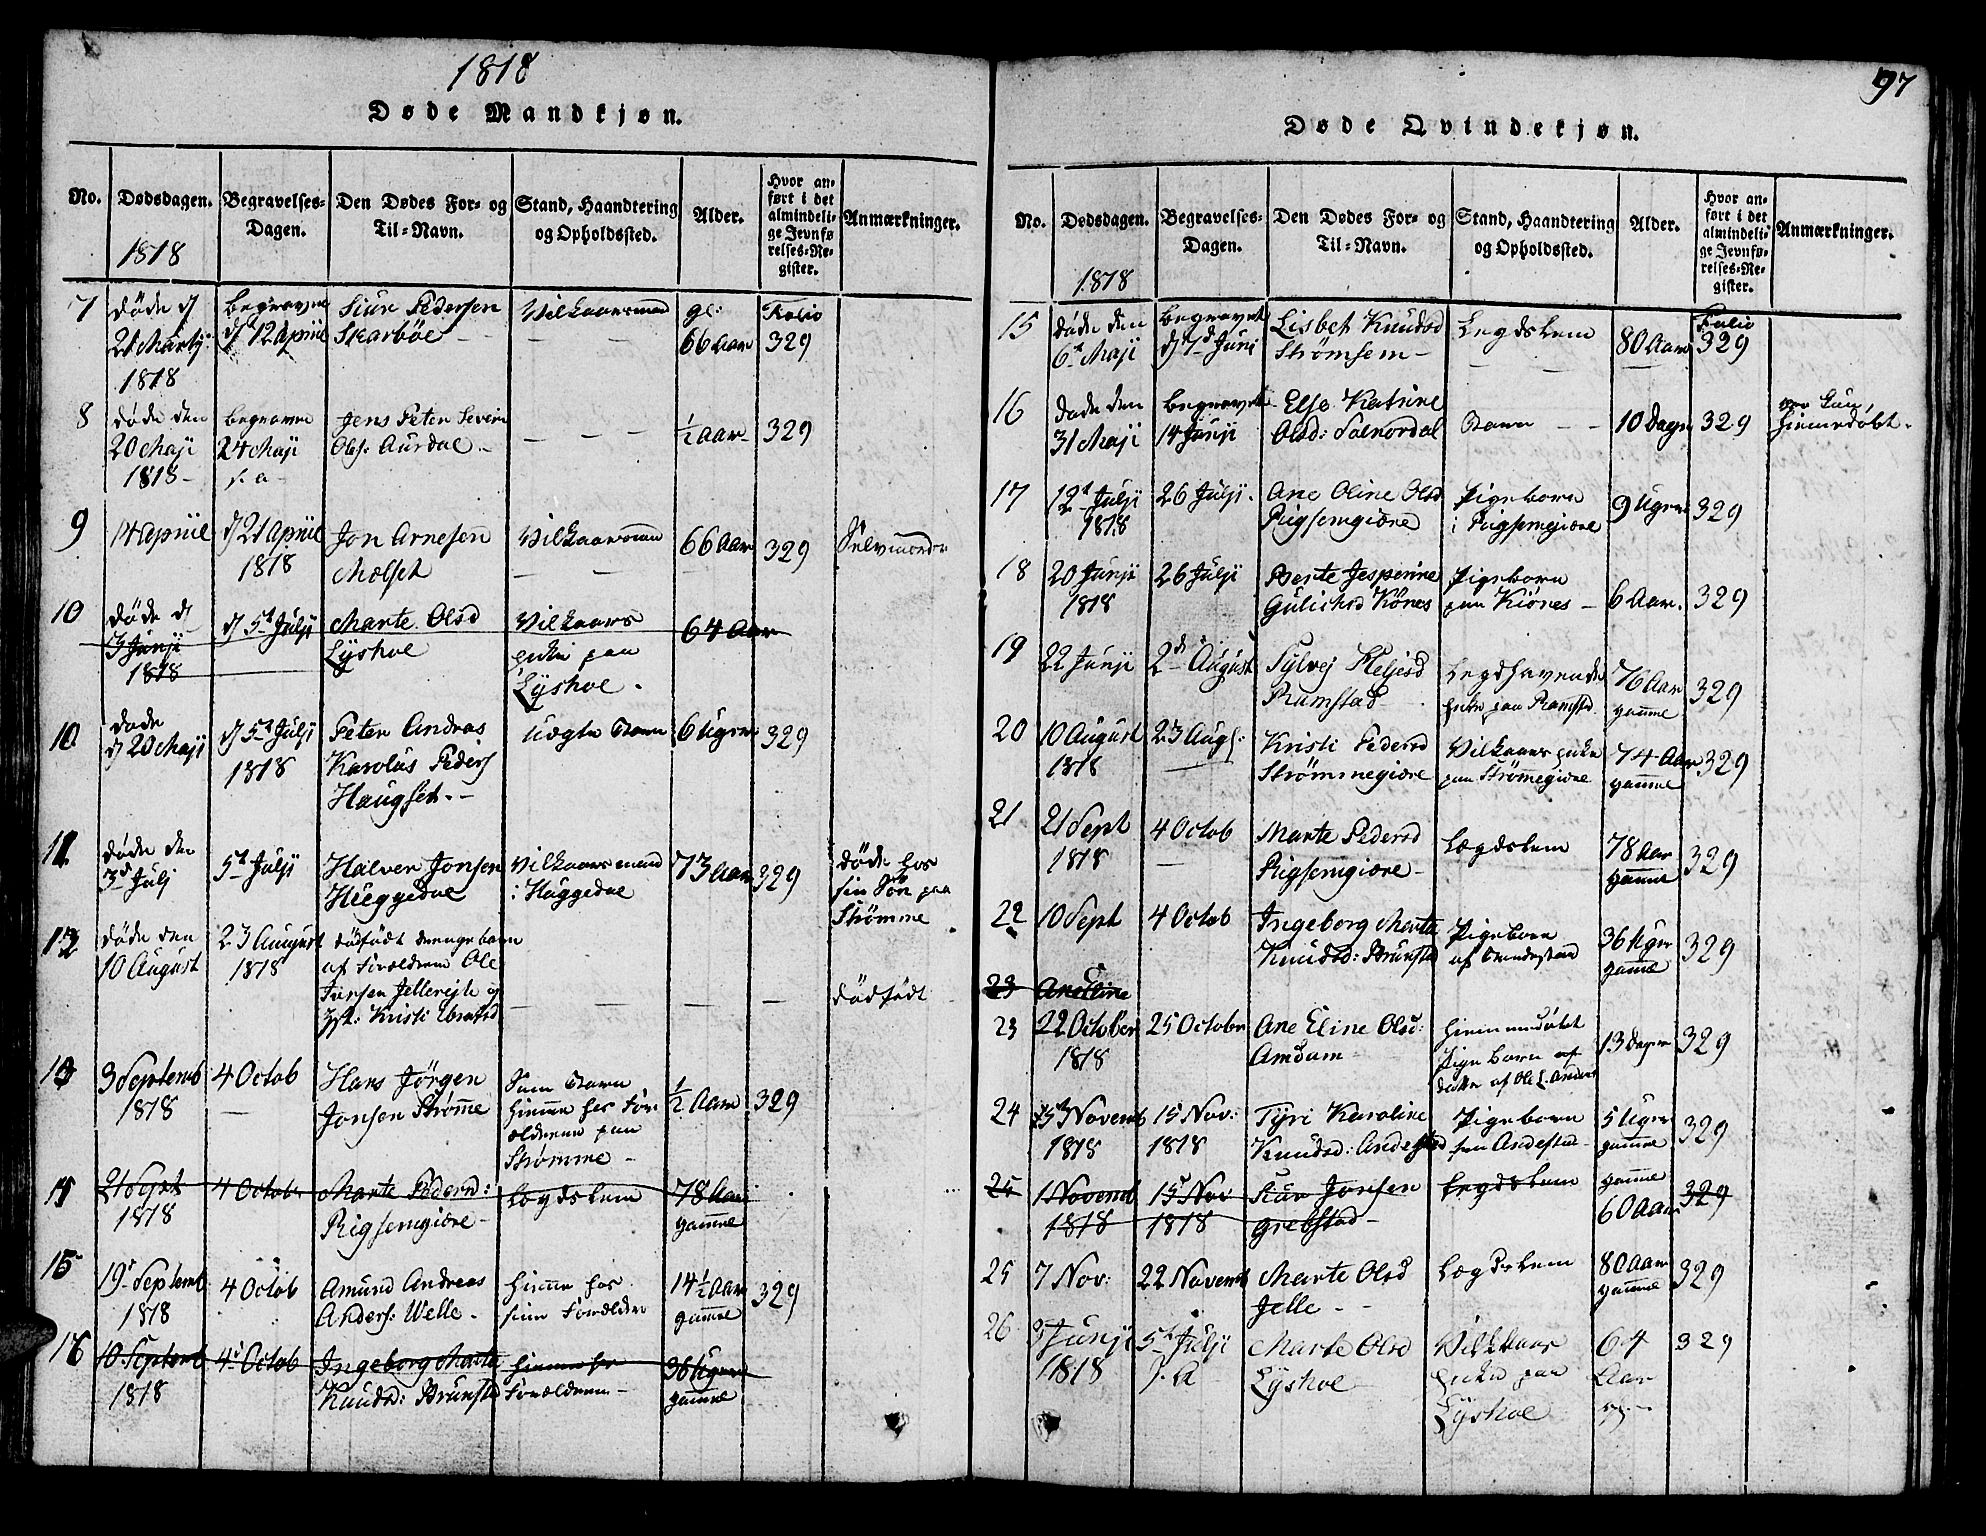 1818
Døde Mandkjøn.
No.
Dødsdagen.
1818
Begravelses-
Dagen.
Den Dødes For- og
Til-Navn.
Stand, Haandtering
og Opholdssted.
Alder.
Hvor an-
ført i det
almindeli-
ge Jevnfø-
relses-Re-
gister.
Anmærkninger.
7
døde d
21 Martj
1818
begravne
d 12 April
Siur Pedersen
Skarbøe
Vilkaarsmand
gl:
66 aar
Folio
329
8
døde den
20 Maji
1818
begravne
24 Maji
s. a
Jens Peter Severin
Ols: Aurdal
½ aar
329
9
14 April
d 21 April
1818
Jon Arnesen
Molset
Vilkaarsman
66 aar
329
Selvmorder
10
døde d
3 Junji
1818
d 5t Julji
Marte Olsd
Lyshoe
Vilkaars
enke paa
Lyshoe
64 Aar
10
døde
d 20 Maji
d 5t Julji
1818
Peter Andreas
Karolus Peders
Haugset
uægte Barn
6 Uger
329
11
døde den
3d Julj
5t Julji
Halver Jonsen
Hieggedal
Vilkaarsmand
i Haggedal
73 aar
329
døde hos
sin Søn paa
Strømme
12
døde den
10 August
23 August
1818
dødfødt drengebarn
af Forældrene Ole
Jonsen Jellereite og
Kristi
dødfødt
13
3 Septemb
1818
4 Octob
Hans Jörgen
Jonsen Strømme
Barn
hiemme hos For
ældrene paa
Strømme
½ Aar
329
21 Sept
1818
4 Octob
Marte Pedersd:
Rigsemgiære
Lægdslem
78 Aar
gamme
15
19 Septemb
1818
4 Octob
Amund Andreas
Anders: Welle
hieme hos
sine Forældre
14½ Aar
gamme
329
16
10 Septemb
1818
4 Octob
Ingeborg Marte
Knudsd: Brunstad
hiemme hos
Forældrene
36 Uger
gamme
97
Døde Qvindekjøn.
No.
Dødsdagen.
1818
Begravelses-
Dagen.
Den Dødes For- og
Til-Navn.
Stand, Haandtering
og Opholdssted.
Alder.
Hvor an-
ført i det
almindeli-
ge Jevnfø-
relses-Re-
gister.
Anmærkninger.
15
døde den
6 Maji
begravet
d 7d Juni
Lisbet Knudsd
Strømsem
Legdslem
80 Aar
Folio
329
16
døde den
31 Maji
begravet
14 Junji
Else Katrine
Olsd: Solnørdal
Barn
10 Dage
329
var kun
hiemedøbt
17
12t Julji
1818
26 Julji
Ane Oline Olsd
Rigsemgiære
Pigebarn
i Rigsemgiære
9 Uger
329
18
20 Junji
1818
26 Julji
Berte Jesperine
Gulichsd Kiönes
Pigebarn
paa Kiönes
6 Aar
329
19
22 Junji
2d August
Sylvej
Ramstad
Legdhavende
enke paa Ramstad
76 Aar
gamme
329
20
10 August
1818
23 Aug
Kristi Pedersd
Strømmegiære
Vilkaars enke
paa Strømegiære
74 Aar
gamme
329
21
21 Sept
1818
4 Octob
Marte Pedersd
Rigsemgiære
Lægdslem
78 Aar
gamme
329
22
10 Sept
4 Octob
Ingeborg Marte
Knudsd: Brunstad
Pigebarn
af Brunestad
36 Uger
gamme
329
23
Ane Eline
23
22 October
1818
25 Octobr
Ane Eline Olsd:
Amdam
hiemmedøbt
Pigebarn af
13 Dage
329
24
5 Novemb
1818
15 Nov:
1818
Tyri Karoline
Knudsd: Andestad
Pigebarn
fra Andestad
5 Uger
gamme
329
25
1 Novemb
1818
15 Nov
1818
Siur Jonsen
Grebstad
Legdslem
gamme
60 Aar
329
25
7 Nov:
22 Novemb
Marte Olsd
Jelle
Lægdslem
80 aar
gamme
329
26
3 Junji
1818
5t Julji
s. a
Marte Olsd
Lyshoe
Vilkaar
enke paa
Lyshoe
64
Aar
329